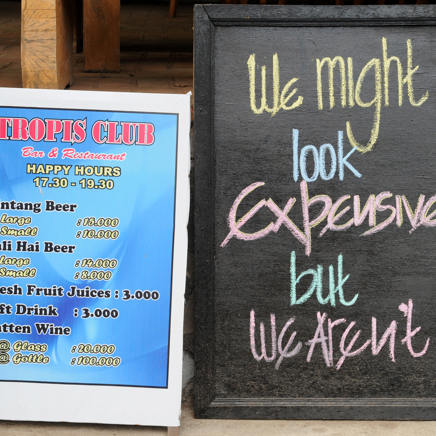 TROPIS CLUB
Bar & Restaurant
HAPPY HOURS
17.30 - 19.30
ntang Beer
Large : 16.000
Small : 10.000
ali Hai Beer
Large : 14.000
Small : 8.000
esh Fruit Juices : 3.000
ft Drink : 3.000
atten Wine
@ Glass : 20.000
@ Gottle : 100.000
We might
look
Expensive
but
We Aren't